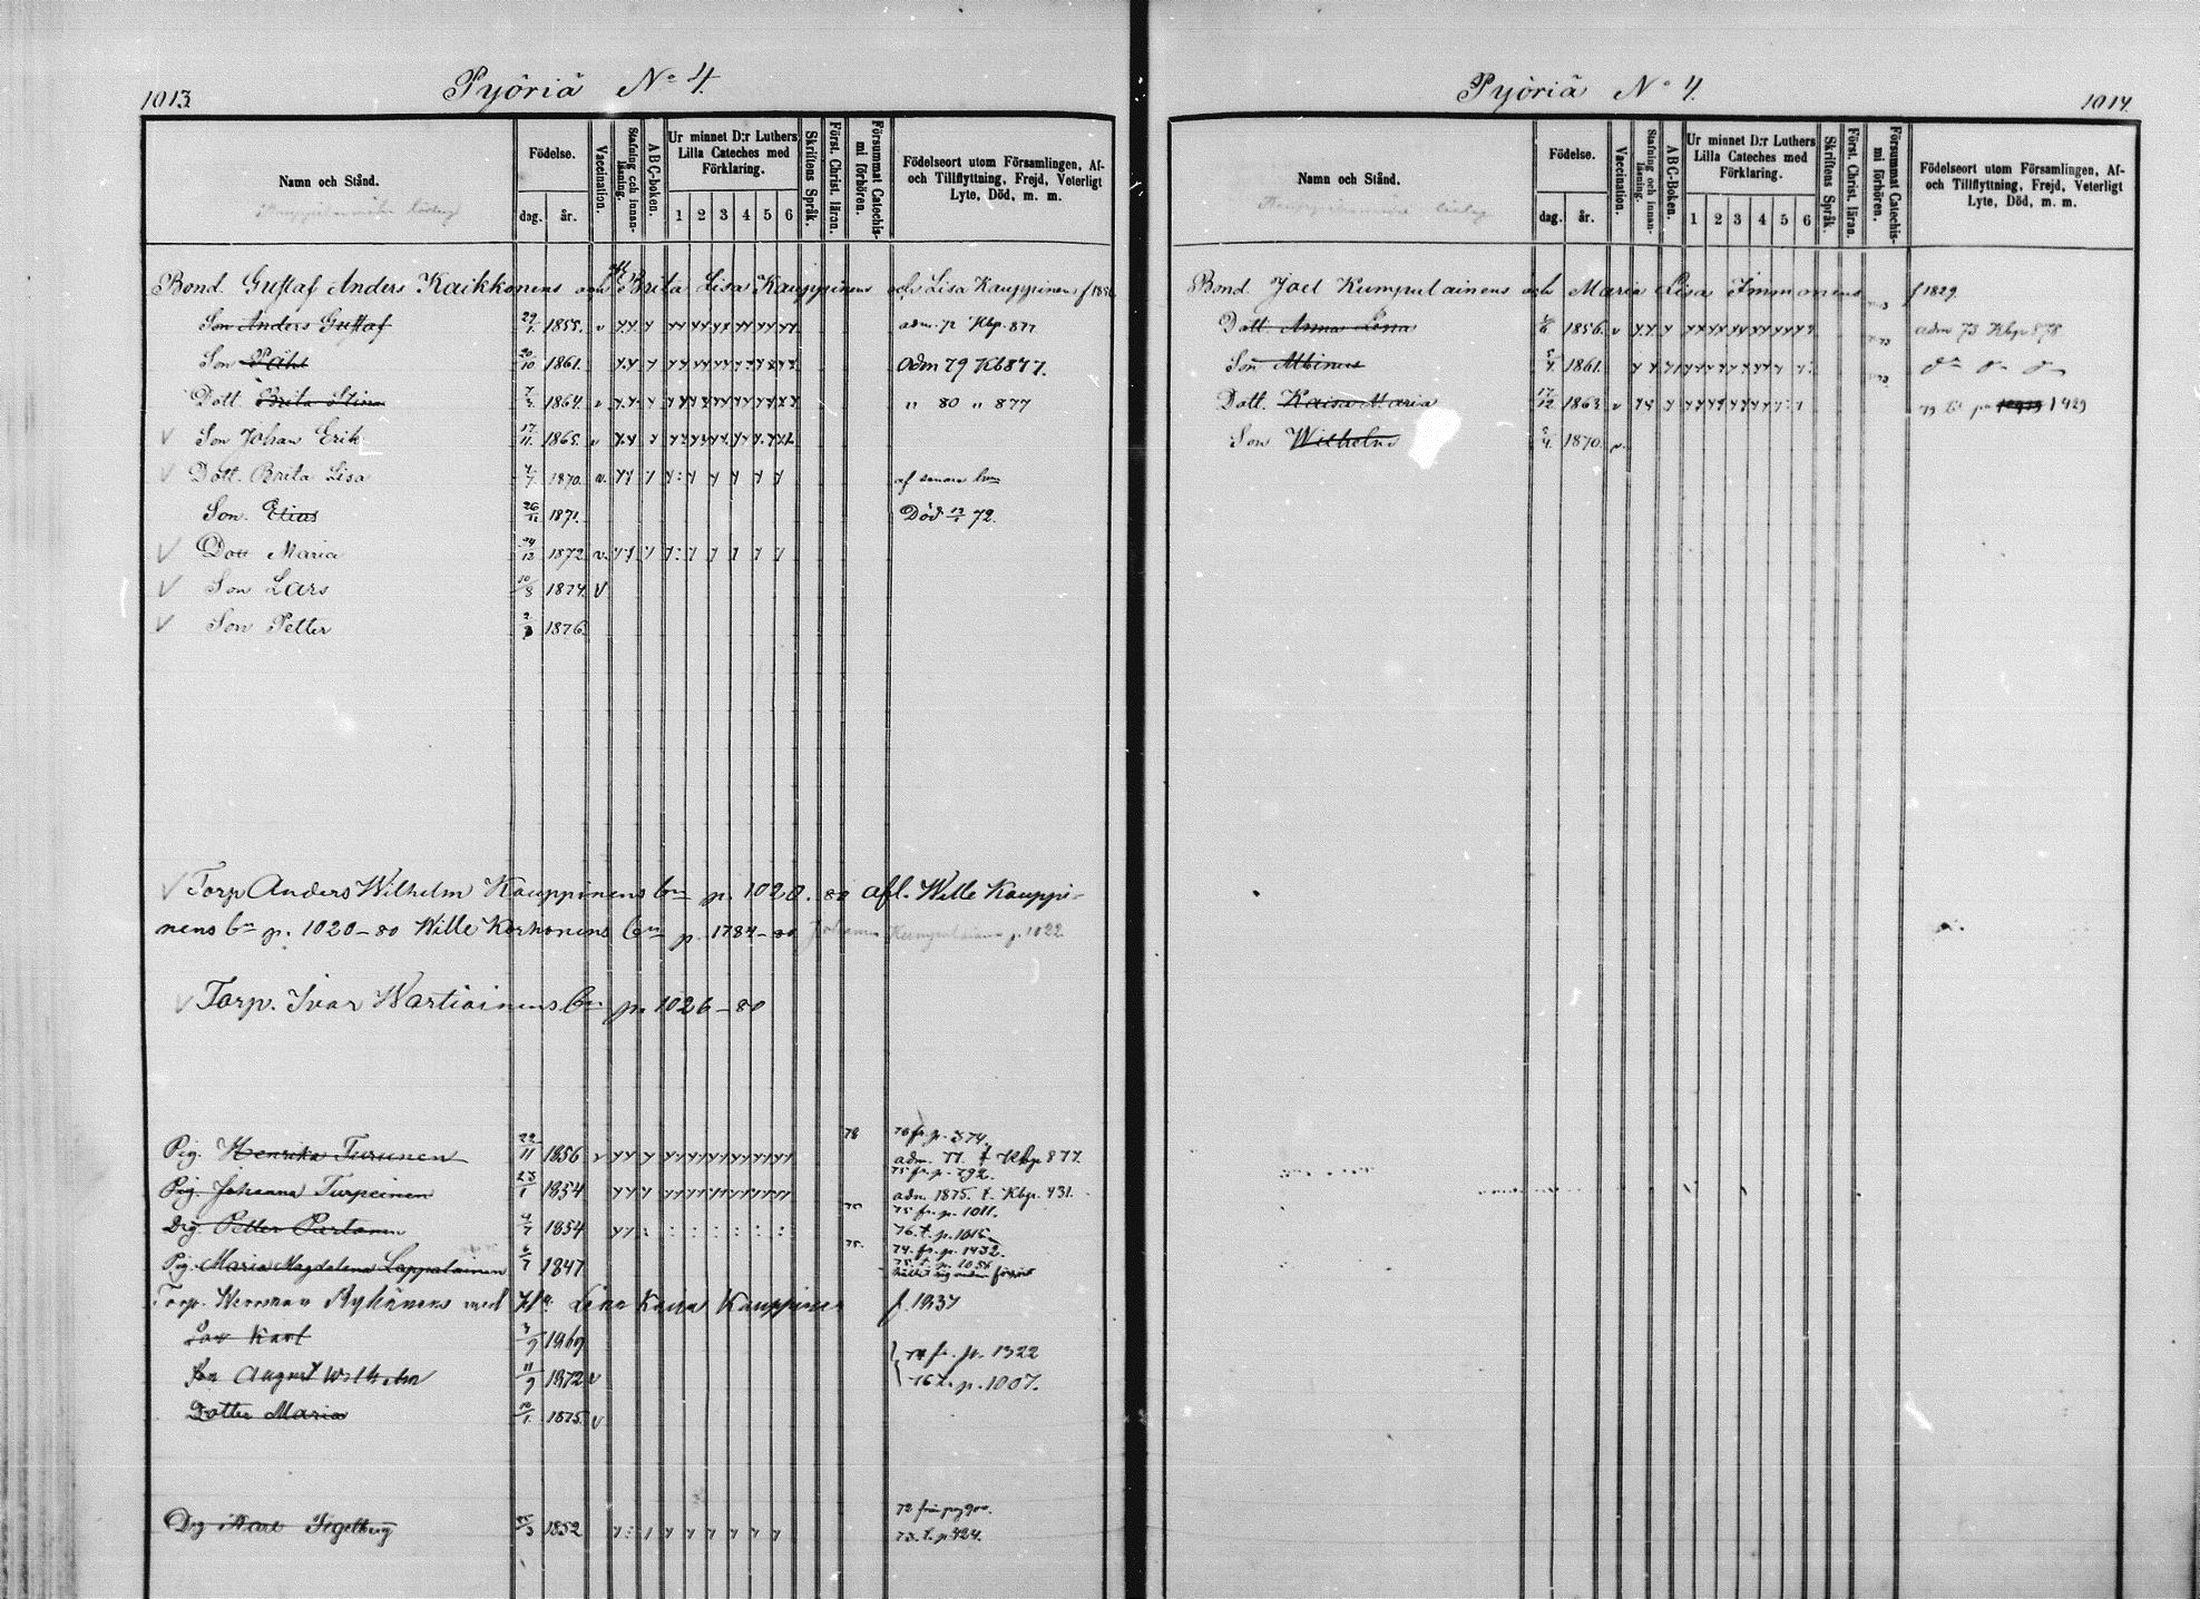 1013.
Pyöriä No 4.
Namn och Stånd.
Födelse.
dag. år.
Vaccination.
Stafning och innan-läsning.
ABC-boken.
Ur minnet D:r Luthers Lilla Cateches med Förklaring.
1 2 3 4 5 6
Skriftens Språk.
Först. Christ. läran.
Försummat Catechis-mi förhören.
Födelseort utom Församlingen, Af- och Tillflyttning, Frejd, Veterligt Lyte, Död, m. m.
Bond. Gustaf Anders Kaikkonens Brita Lisa Kauppinens och Lisa Kauppinens
Son Anders Gustaf 29/1 1855. v Kbp. 877
Son Påhl 20/10 1861. adm 79 Kb 877.
Dott. Brita Stina 7/3 1864. v " 80 " 877
Son Johan Erik 17/11 1865. v
Dott. Brita Lisa 1870. v. af senare
Son. Elias 26/11 1871. Död 12/1 72.
Dott Maria 24/12 1872 v.
Son Lars 10/8 1874. V
Son Petter 1876.
Torp Anders Wilhelm Kauppinens bn p. 1020. 80 afl. Wille Kauppi-
nens bn p. 1020-80 Wille Korhonens bn p. 1784-80 Kumpulainen p. 1022
Torp. Ivar Wartiainens bn p. 1026-80
Pig. Henrika Turunen 22/11 1856 v 78 76 fr. p. 574.
adm. 77. t Kbp 877
Pig. Johanna Turpeinen 23/1 1854 75 fr. p. 792.
adm. 1875. t. Kbp. 431.
Drg. Petter Partanen 4/7 1854 75 75 fr. p. 1011.
76. t. p. 1015
Pig. Maria Magdalena Lappalainen 6/7 1847 75. 74. fr. p. 1432.
75. t. p. 1056
Torp. Herman Ryhänens med H:a Lena Kaisa Kauppinen f. 1837
Son Karl 3/9 1869
Son August Wilhelm 11/9 1872 v 74 fr. p. 1322
Dotter Maria 10/1 1875. v 76 t. p. 1007.
Drg Karl Segelberg 25/3 1852 72 från pag 900.
73. t. p 424.
Pyöriä No 4.
1014.
Namn och Stånd.
Födelse.
dag. år.
Vaccination.
Stafning och innan-läsning.
ABC-Boken.
Ur minnet D:r Luthers Lilla Cateches med Förklaring.
1 2 3 4 5 6
Skriftens Språk.
Först. Christ. läran.
Försummat Catechis-mi förhören.
Födelseort utom Församlingen, Af- och Tillflyttning, Frejd, Veterligt Lyte, Död, m. m.
Bond. Joel Kumpulainens och Maria Lisa Immonens f 1829.
Dott Anna Lena 1856. v adm 73 Kbp 878
Son Albinus 1861.
Dott. Kaisa Maria 17/12 1863. v 1429
Son Wilhelm 1870. v.